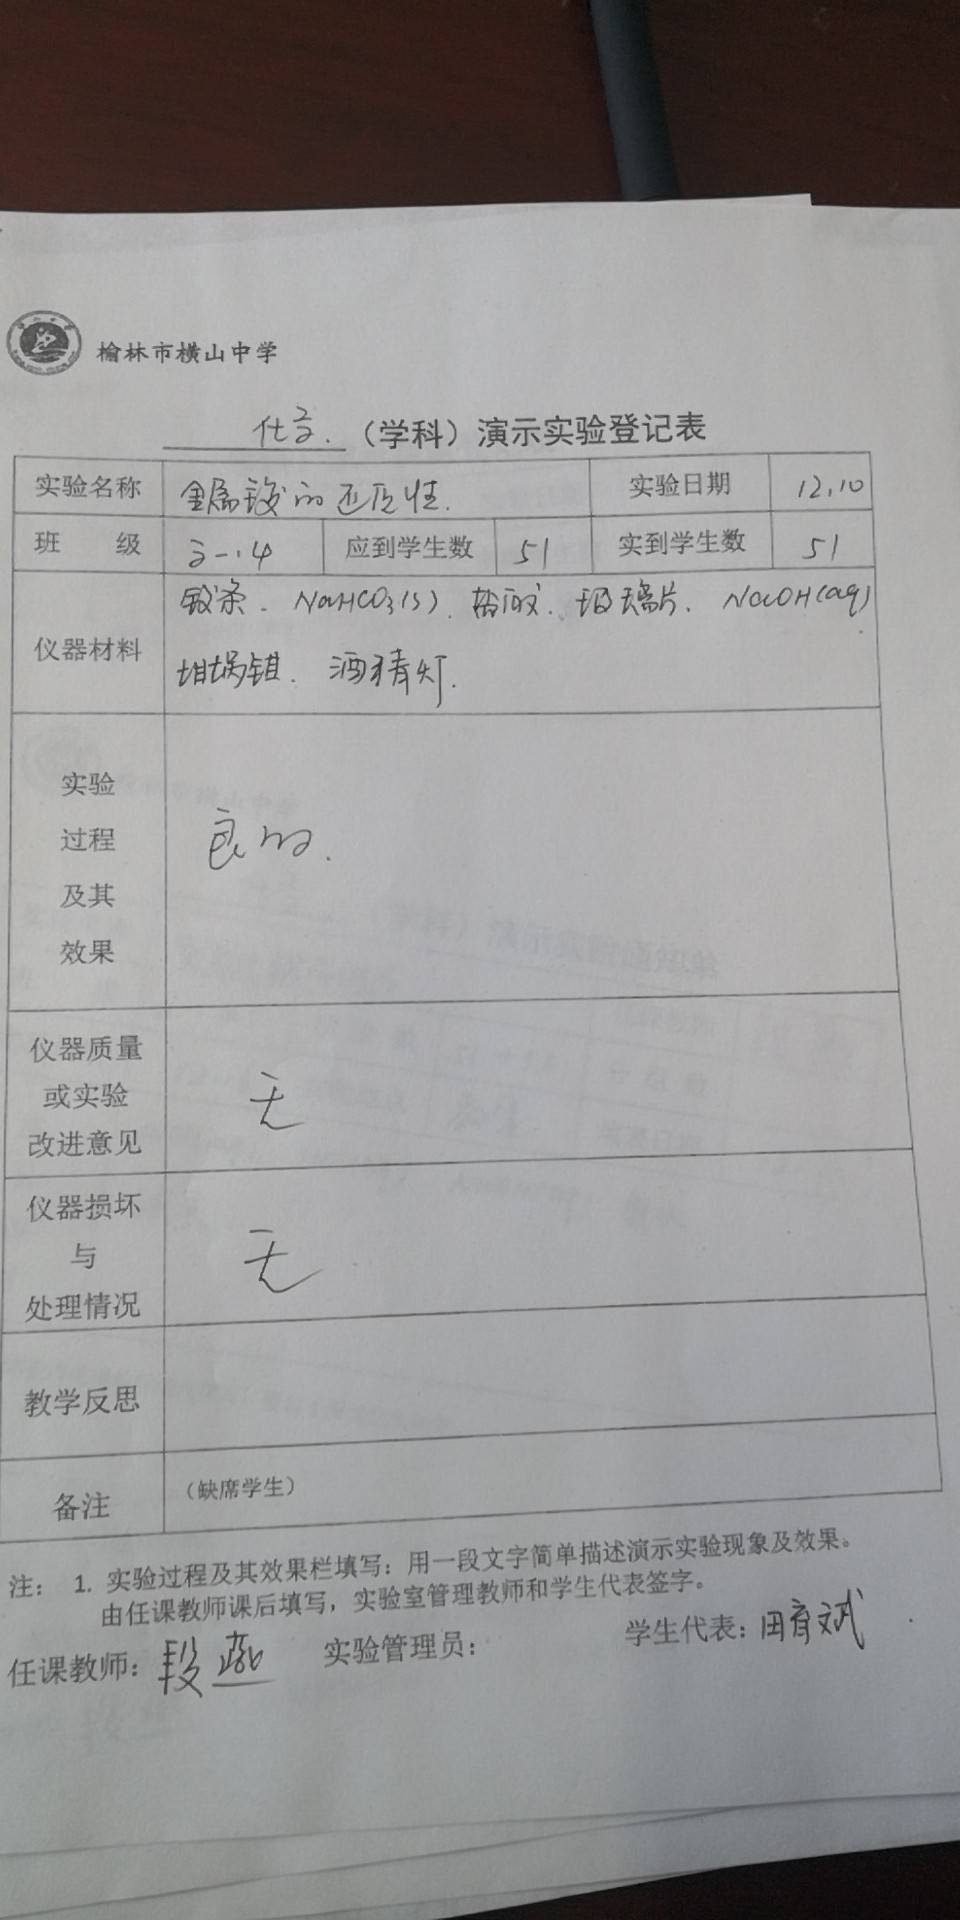 榆林市横山中学
化学.（学科）演示实验登记表
实验名称 金属镁的还原性. 实验日期 12.10
班 级 高一.4 应到学生数 51 实到学生数 51
仪器材料 镁条. NaHCO3(s). 盐酸. 玻璃片. NaOH(aq)
坩埚钳. 酒精灯.
实验
过程
及其
效果
良好.
仪器质量
或实验
改进意见
无
仪器损坏
与
处理情况
无
教学反思
备注 （缺席学生）
注： 1. 实验过程及其效果栏填写：用一段文字简单描述演示实验现象及效果。
由任课教师课后填写，实验室管理教师和学生代表签字。
任课教师：段燕 实验管理员： 学生代表：田育斌